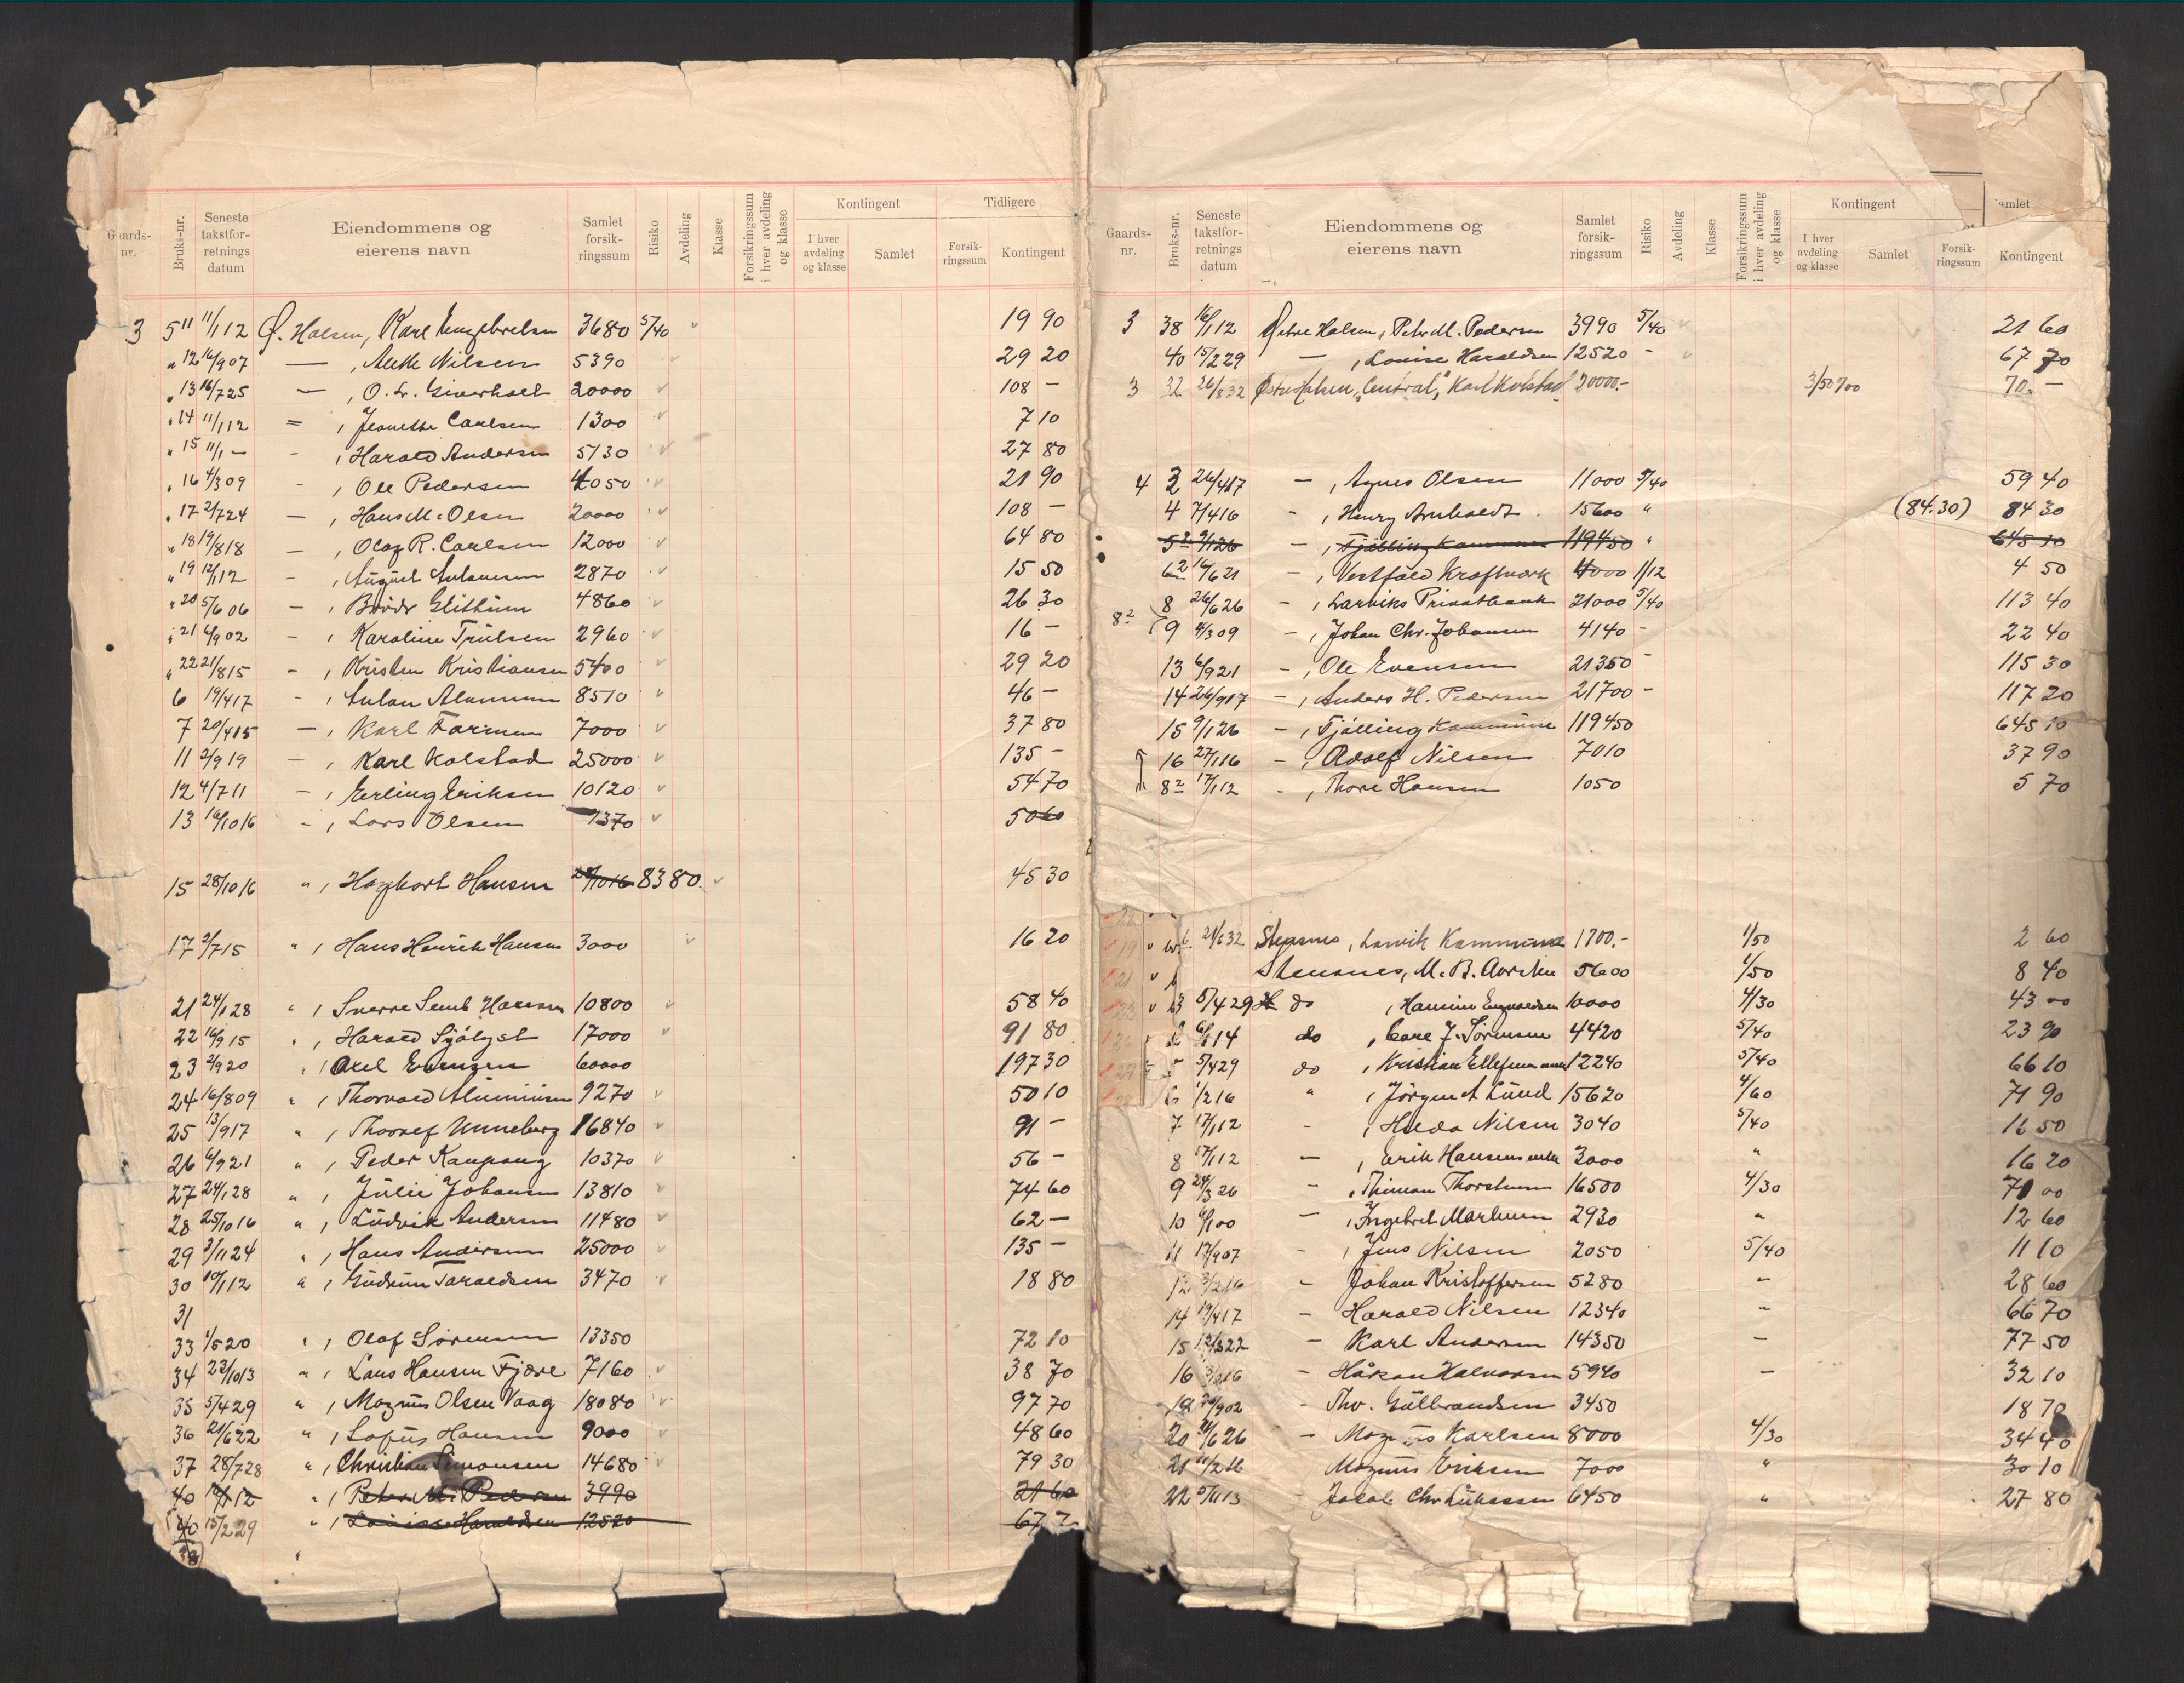 Gaards-nr. Bruks-nr. Seneste takstfor-retnings datum Eiendommens og eierens navn Samlet forsik-ringssum Risiko Avdeling Klasse Forsikringssum i hver avdeling og klasse Kontingent I hver avdeling og klasse Samlet Tidligere Forsik-ringssum Kontingent
3 5 11 11/1 12 Ø. Halsen, Karl Engebretsen 3680 5/40 19 90
" 12 16/9 07 — , Nilsen 5390 29 20
" 13 16/7 25 — , O. Giverholt 20000 108 —
" 14 11/1 12 = , Jeanette Carlsen 1300 7 10
" 15 11/1 — - , Harald Andersen 5130 27 80
" 16 4/3 09 - , Ole Pedersen 4050 21 90
" 17 2/7 24 — , Hans M. Olsen 20000 108 —
" 18 19/8 18 — , Olaf R. Carlsen 12000 64 80
" 19 12/1 12 - , August 2870 15 50
" 20 5/6 06 — , Brødr 4860 26 30
" 21 6/9 02 - , Karoline Trulsen 2960 16 —
" 22 21/8 15 - , Kristen Kristiansen 5400 29 20
6 19/4 17 - , 8510 46 —
7 20/4 15 — , Karl Farmen 7000 37 80
11 2/9 19 — , Karl Kolstad 25000 135 —
12 4/7 11 — , Erling Eriksen 10120 54 70
13 16/10 16 - , Lars Olsen 1370 50 60
15 28/10 16 " , Hagbart Hansen 28/10 16 8380 45 30
17 2/7 15 " , Hans Henrik Hansen 3000 16 20
21 24/1 28 " , Sverre Semb Hansen 10800 58 40
22 16/9 15 " , Harald Sjølyst 17000 91 80
23 2/9 20 " , Axel Evensen 60000 197 30
24 16/8 09 " , Thorvald 9270 50 10
25 13/9 17 " , Thoralf Unneberg 16840 91 —
26 6/9 21 " , Peder Kaupang 10370 56 —
27 24/1 28 " , Julie Johansen 13810 74 60
28 25/10 16 " , Ludvik Andersen 11480 62 —
29 3/11 24 " , Hans Andersen 25000 135 —
30 10/1 12 " , Gudrun Taraldsen 3470 18 80
31
33 1/5 20 " , Olaf Sørensen 13350 72 10
34 23/10 13 " , Lars Hansen Fjære 7160 38 70
35 5/4 29 " , Magnus Olsen Vaag 18080 97 70
36 21/6 22 " , Sofus Hansen 9000 48 60
37 28/7 28 " , Christian Simonsen 14680 79 30
40 12 " , Peter M. Pedersen 3990 21 60
40 15/2 29 " , Louise Haraldsen 12520 67 7
38 "
Gaards-nr. Bruks-nr. Seneste takstfor-retnings datum Eiendommens og eierens navn Samlet forsik-ringssum Risiko Avdeling Klasse Forsikringssum i hver avdeling og klasse Kontingent I hver avdeling og klasse Samlet Forsik-ringssum amlet Kontingent
3 38 16/1 12 Østre Halsen, Petr M. Pedersen 3990 5/40 21 60
40 15/2 29 — , Louise Haraldsen 12520 - 67 70
3 32 26/8 32 Østre Halsen, "Central", Karl Kolstad 20000.- 3/50 70. —
4 3 26/4 17 — , Agnes Olsen 11000 5/40 59 40
4 7/4 16 - , Henry Arnholdt 15600 " (84.30) 84 30
5 2 9/1 26 - , Tjølling Kommune 119450 " 645 10
6 2 16/6 21 - , Vestfold Kraftverk 4000 1/12 4 50
8 26/6 26 - , Larviks Privatbank 21000 5/40 113 40
8 2 9 4/3 09 - , Johan Chr. Johansen 4140 - 22 40
13 6/9 21 - , Ole Evensen 21350 - 115 30
14 26/9 17 - , Anders H. Pedersen 21700 - 117 20
15 9/1 26 - , Tjølling Kommune 119450 645 10
16 27/1 16 - , Adolf Nilsen 7010 37 90
8 2 17/1 12 - , Thore Hansen 1050 5 70
19 " 21/6 32 Stensnes, Larvik Kommune 1700.- 1/50 2 60
21 " Stensnes, M. B. 5600 1/50 8 40
" 3 5/4 29 do , Hansine 10000 4/30 43 00
14 do , Carl J. Sørensen 4420 5/40 23 90
5 5/4 29 do , Kristian Ellefsen 12240 5/40 66 10
6 1/2 16 " , Jørgen A Lund 15620 4/60 71 90
7 17/1 12 - , Hilda Nilsen 3040 5/40 16 50
8 17/1 12 — , Erik Hansens enke 3000 " 16 20
9 24/3 26 - , Thorsten 16500 4/30 71 00
10 6/1 00 — , Ingebret 2930 " 12 60
11 17/9 07 - , Jens Nilsen 2050 5/40 11 10
12 3/2 16 - Johan Kristoffersen 5280 " 28 60
14 19/4 17 - Harald Nilsen 12340 - 66 70
15 22 - Karl Andersen 14350 — 77 50
16 3/2 16 - Håkon Halvorsen 5940 — 32 10
902 - Thv. Gulbrandsen 3450 18 70
20 21/6 26 - Magnus Karlsen 8000 4/30 34 40
21 11/2 16 Magnus Eriksen 7000 " 30 10
22 13 - Jakob Chr. 6450 " 27 80